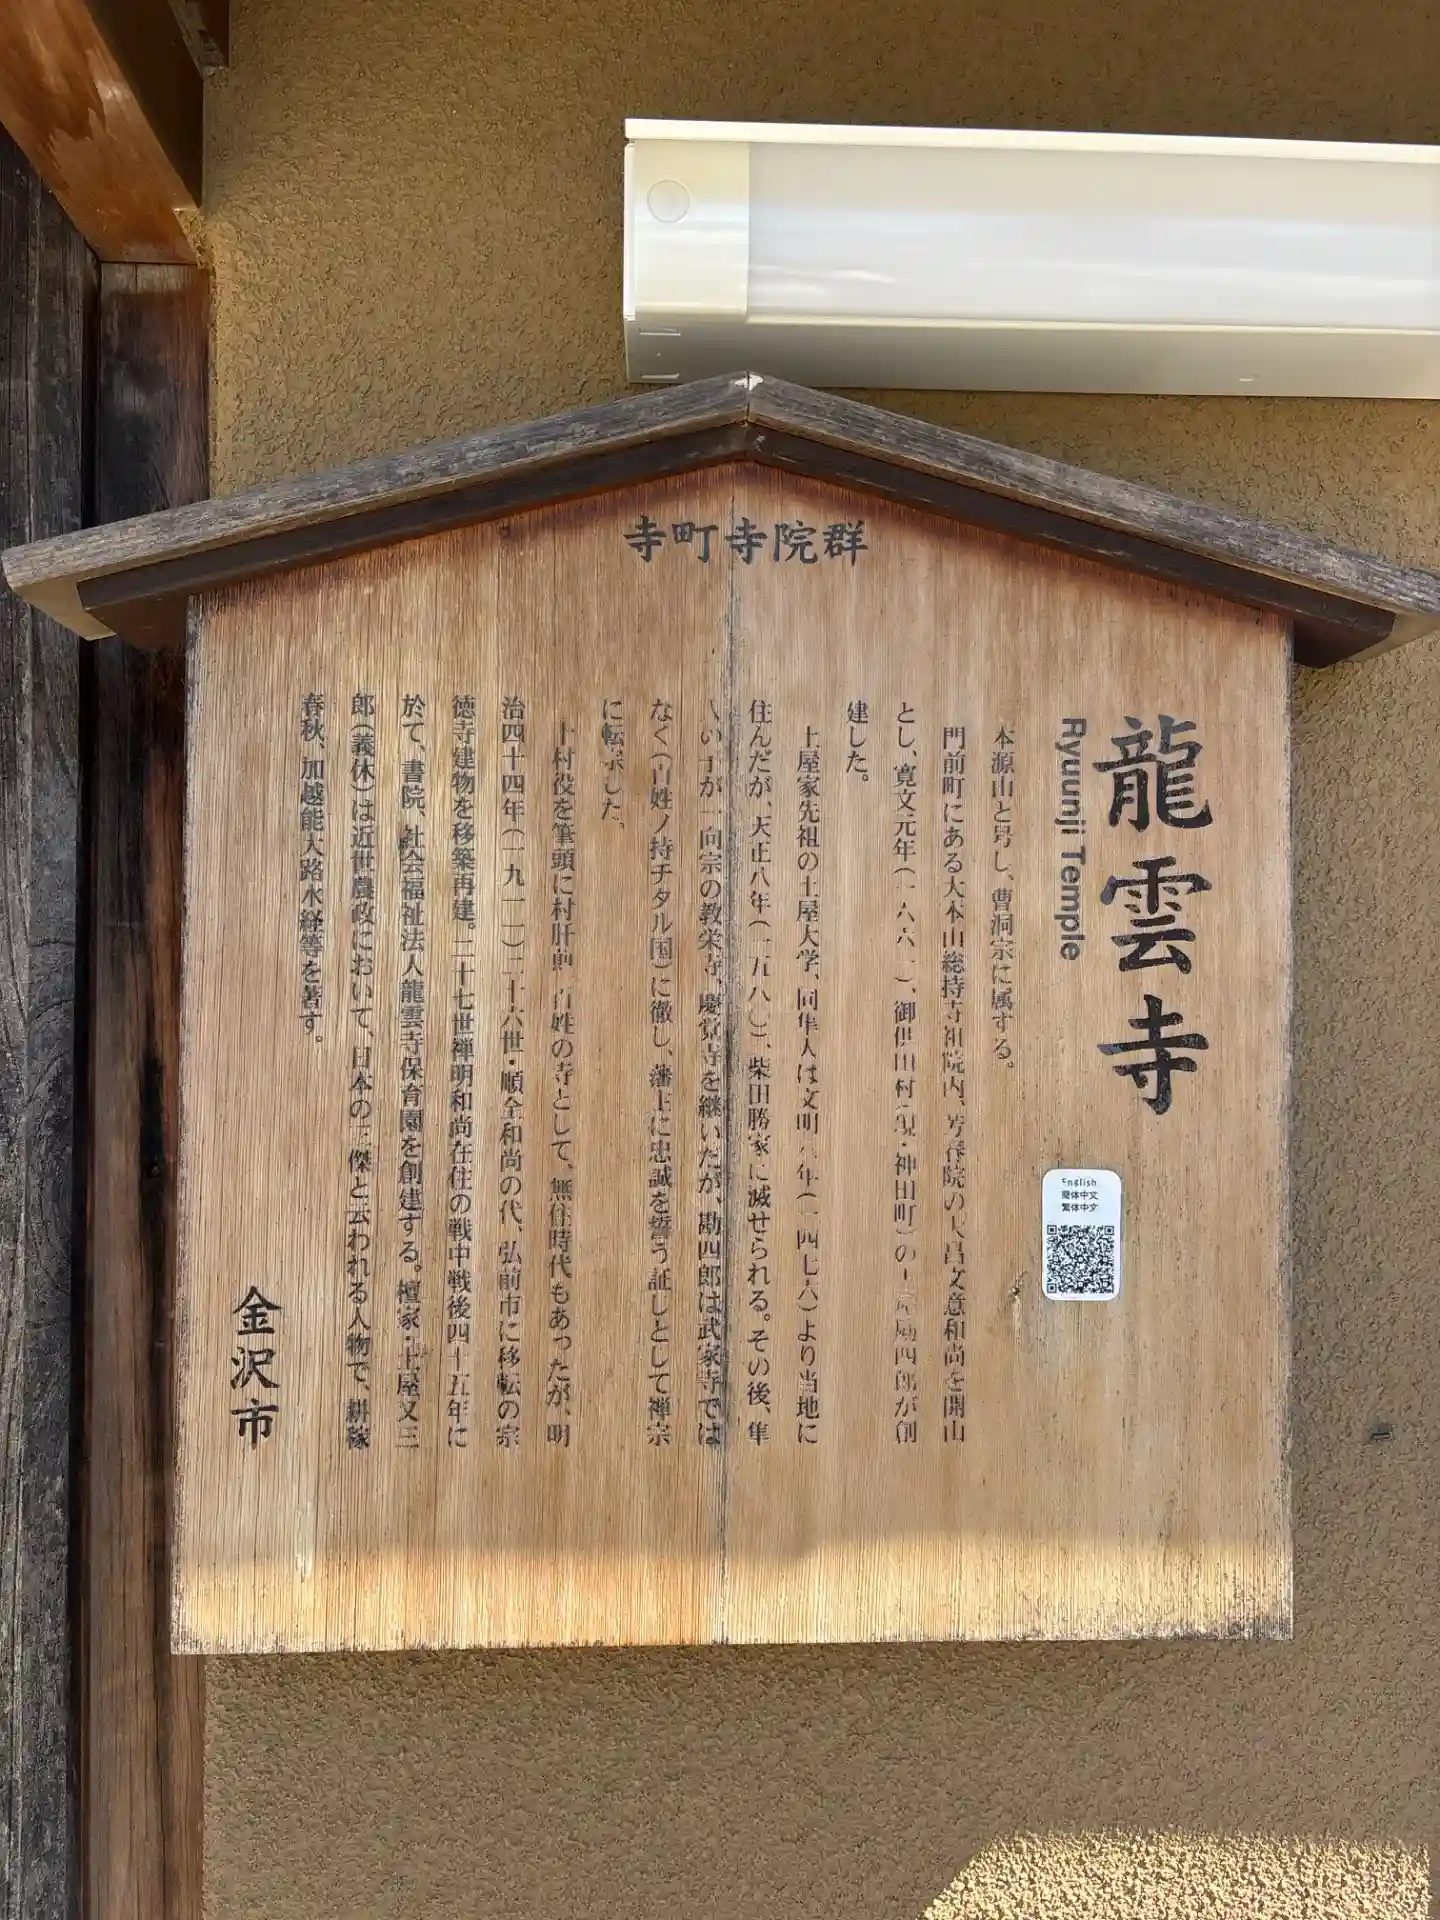 寺町寺院群
龍雲寺
Ryuunji Temple
本源山と号し、曹洞宗に属する。
門前町にある大本山総持寺祖院内、芳春院の大昌文意和尚を開山
とし、寛文元年(一六六一)、御供田村(現・神田町)の土屋勘四郎が創
建した。
土屋家先祖の土屋大学、同隼人は文明八年(一四七六)より当地に
住んだが、天正八年(一五八〇)、柴田勝家に滅せられる。その後、隼
人の子が一向宗の教栄寺、慶覚寺を継いだが、勘四郎は武家寺では
なく(百姓ノ持チタル国)に徹し、藩主に忠誠を誓う証しとして禅宗
に転宗した。
十村役を筆頭に村肝煎、百姓の寺として、無住時代もあったが、明
治四十四年(一九一一)二十六世・順全和尚の代、弘前市に移転の宗
徳寺建物を移築再建。二十七世禅明和尚在住の戦中戦後四十五年に
於て、書院、社会福祉法人龍雲寺保育園を創建する。檀家・土屋又三
郎(義休)は近世農政において、日本の三傑と云われる人物で、耕稼
春秋、加越能大路水経等を著す。
金沢市
English
簡体中文
繁体中文